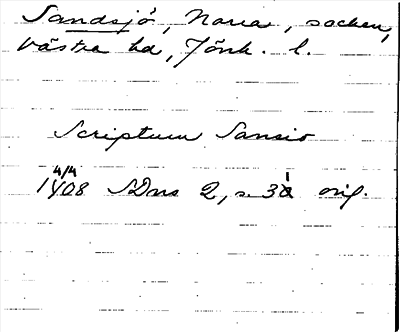 Sandsjö, Norra, socken,
Västra hd, Jönk. l.
Scriptum Sansio
4/4
1408 SDns 2, s. 31 orig.